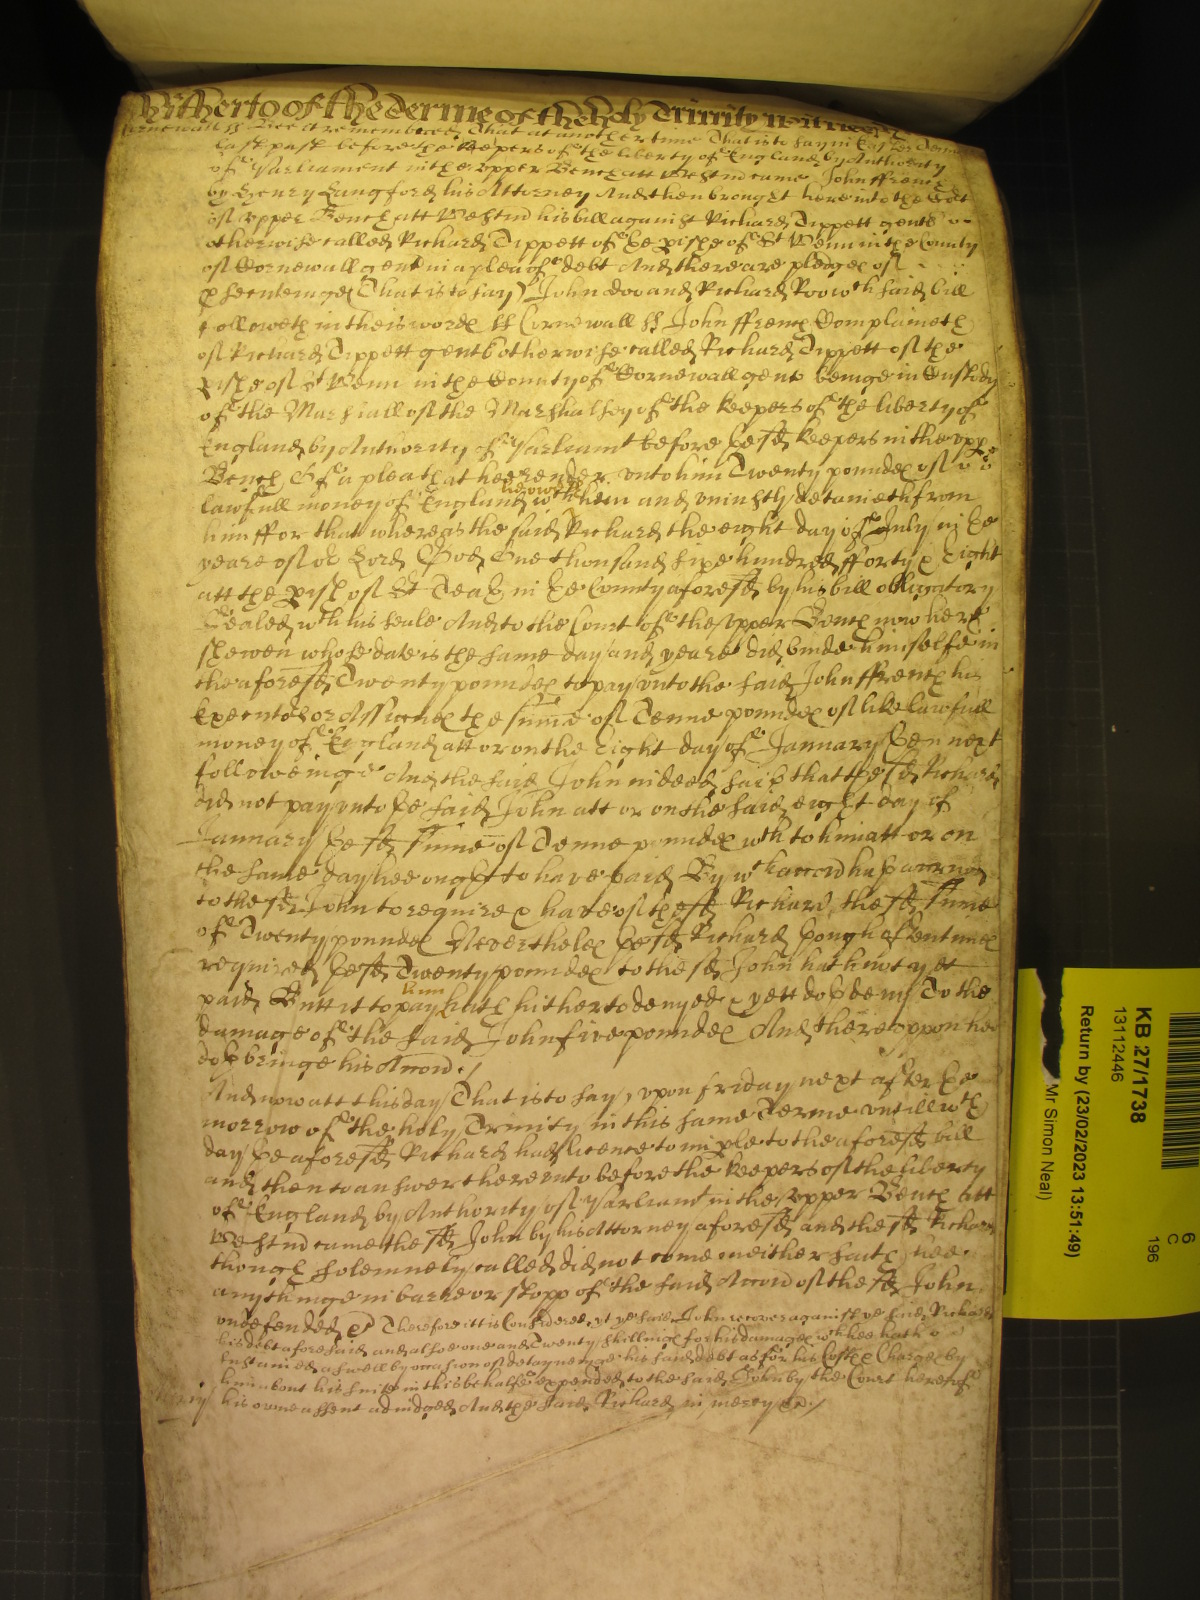 Hitherto of the terme of the holy Trinity
Cornewall ss Bee it remembred That at another time That is to say in Easter terme
last past before the keepers of the liberty of England by Authority
of Parliament in the upper Bench att Westm came John ffrench
by Henry Langford his Attorney And then brought here into the Cort
of upper Bench att Westm his bill against Richard Tippett gent
otherwise called Richard Tippett of the pishe of St Wenn in the County
of Cornewall gent in a plea of debt And there are pledges of
psecuteinge (That is to say) John doo and Richard Roo wch said bill
followeth in theis wordes ss Cornewall ss John ffrench Complaineth
of Richard Tippett gent otherwise called Richard Tippett of the
pishe of St Wenn in the County of Cornewall gent beinge in Custody
of the Marshall of the Marshalsey of the keepers of the liberty of
England by Authority of Parliamt before the sd keepers in the upper
Bench Of a plea that hee render unto him Twenty poundes of
lawfull money of England wch hee oweth him and uniustly detaineth from
him ffor that whereas the said Richard the eight day of July in the
yeare of or Lord God One thousand sixe hundred fforty & Eight
att the pish of St Teath in the County aforesd by his bill obligatory
Sealed wth his seale And to the Court of the upper Bench now here
shewen whose date is the same day and yeare did binde himselfe in
the aforesd Twenty poundes to pay unto the said John ffrench his
Executors or Assignes the sume of Tenne poundes of like lawfull
money of England att or on the Eight day of January then next
followeinge And the said John indeed saith that the sd Richard
did not pay unto the said John att or on the said eight day of
January the sd sume of Tenne poundes wch to him att or on
the same day hee ought to have paid By wch accon hath accrued
to the sd John to require & have of the sd Richard the sd sume
of Twenty poundes Neverthelesse the sd Richard though oftentimes
required the sd Twenty poundes to the sd John hath not yet
paid Butt it to pay him hath hitherto denyed & yett doth deny To the
damage of the said John five poundes And thereuppon hee
doth bringe his Accon ./
And now att this day That is to say, upon friday next after the
morrow of the holy Trinity in this same Terme untill wch
day the aforesd Richard had licence to imple to the aforesd bill
and then to answer thereunto before the keepers of the liberty
of England by Authority of Parliamt in the upper Bench att
Westm came the sd John by his Attorney aforesd and the sd Richard
though solemnely called did not come neither saith hee
any thinge in barre or stopp of the said Accon of the sd John
undefended &c Therefore itt is Considered yt ye said John recover against ye said Richard
his debt aforesaid and alsoe one and Twenty shillings for his damages wch hee hath
sustained aswell by occasion of detayneinge his said debt as for his Costes & Charges by
him about his suite in this behalfe expended to the said John by the Court here of
mcy his owne assent adiudged And the said Richard in mercy &c ./
KB 27/1738
13112446
Return by (23/02/2023 13:51:49)
Mr Simon Neal)
6
C
196